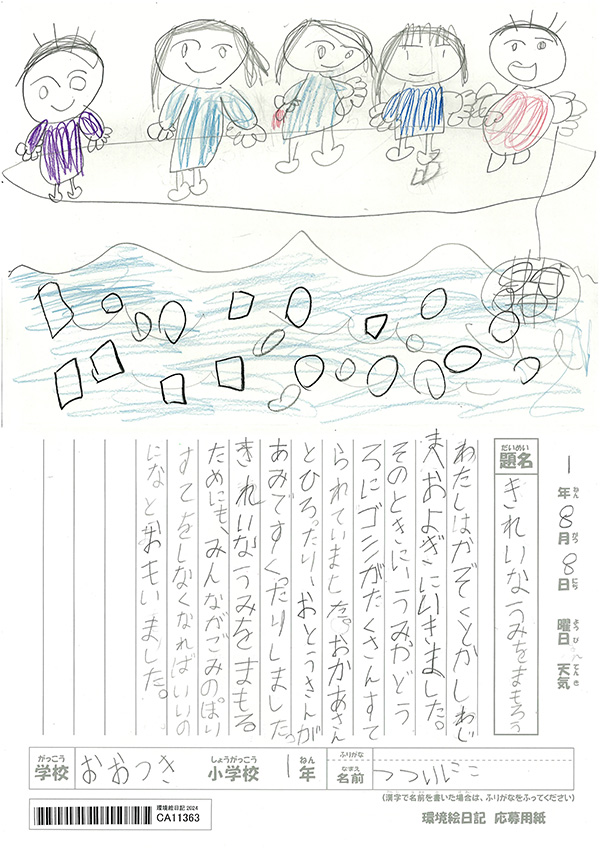 1年8月8日 曜日 天気
ねん がつ にち ようび てんき
だいめい
題名
きれいなうみをまもろう
わたしはかぞくとかしわじ
まへおよぎにいきました。
そのときにうみやどう
ろにゴミがたくさんすて
られていました。おかあさん
とひろったり、おとうさんが
あみですくったりしました。
きれいなうみをまもる
ためにも、みんながごみのぽい
すてをしなくなればいいの
になとおもいました。
がっこう しょうがっこう ねん ふりがな
学校 おおつき 小学校 1年
なまえ
名前 つついにこ
(漢字で名前を書いた場合は、ふりがなをふってください)
環境絵日記 2024
CA11363
環境絵日記 応募用紙